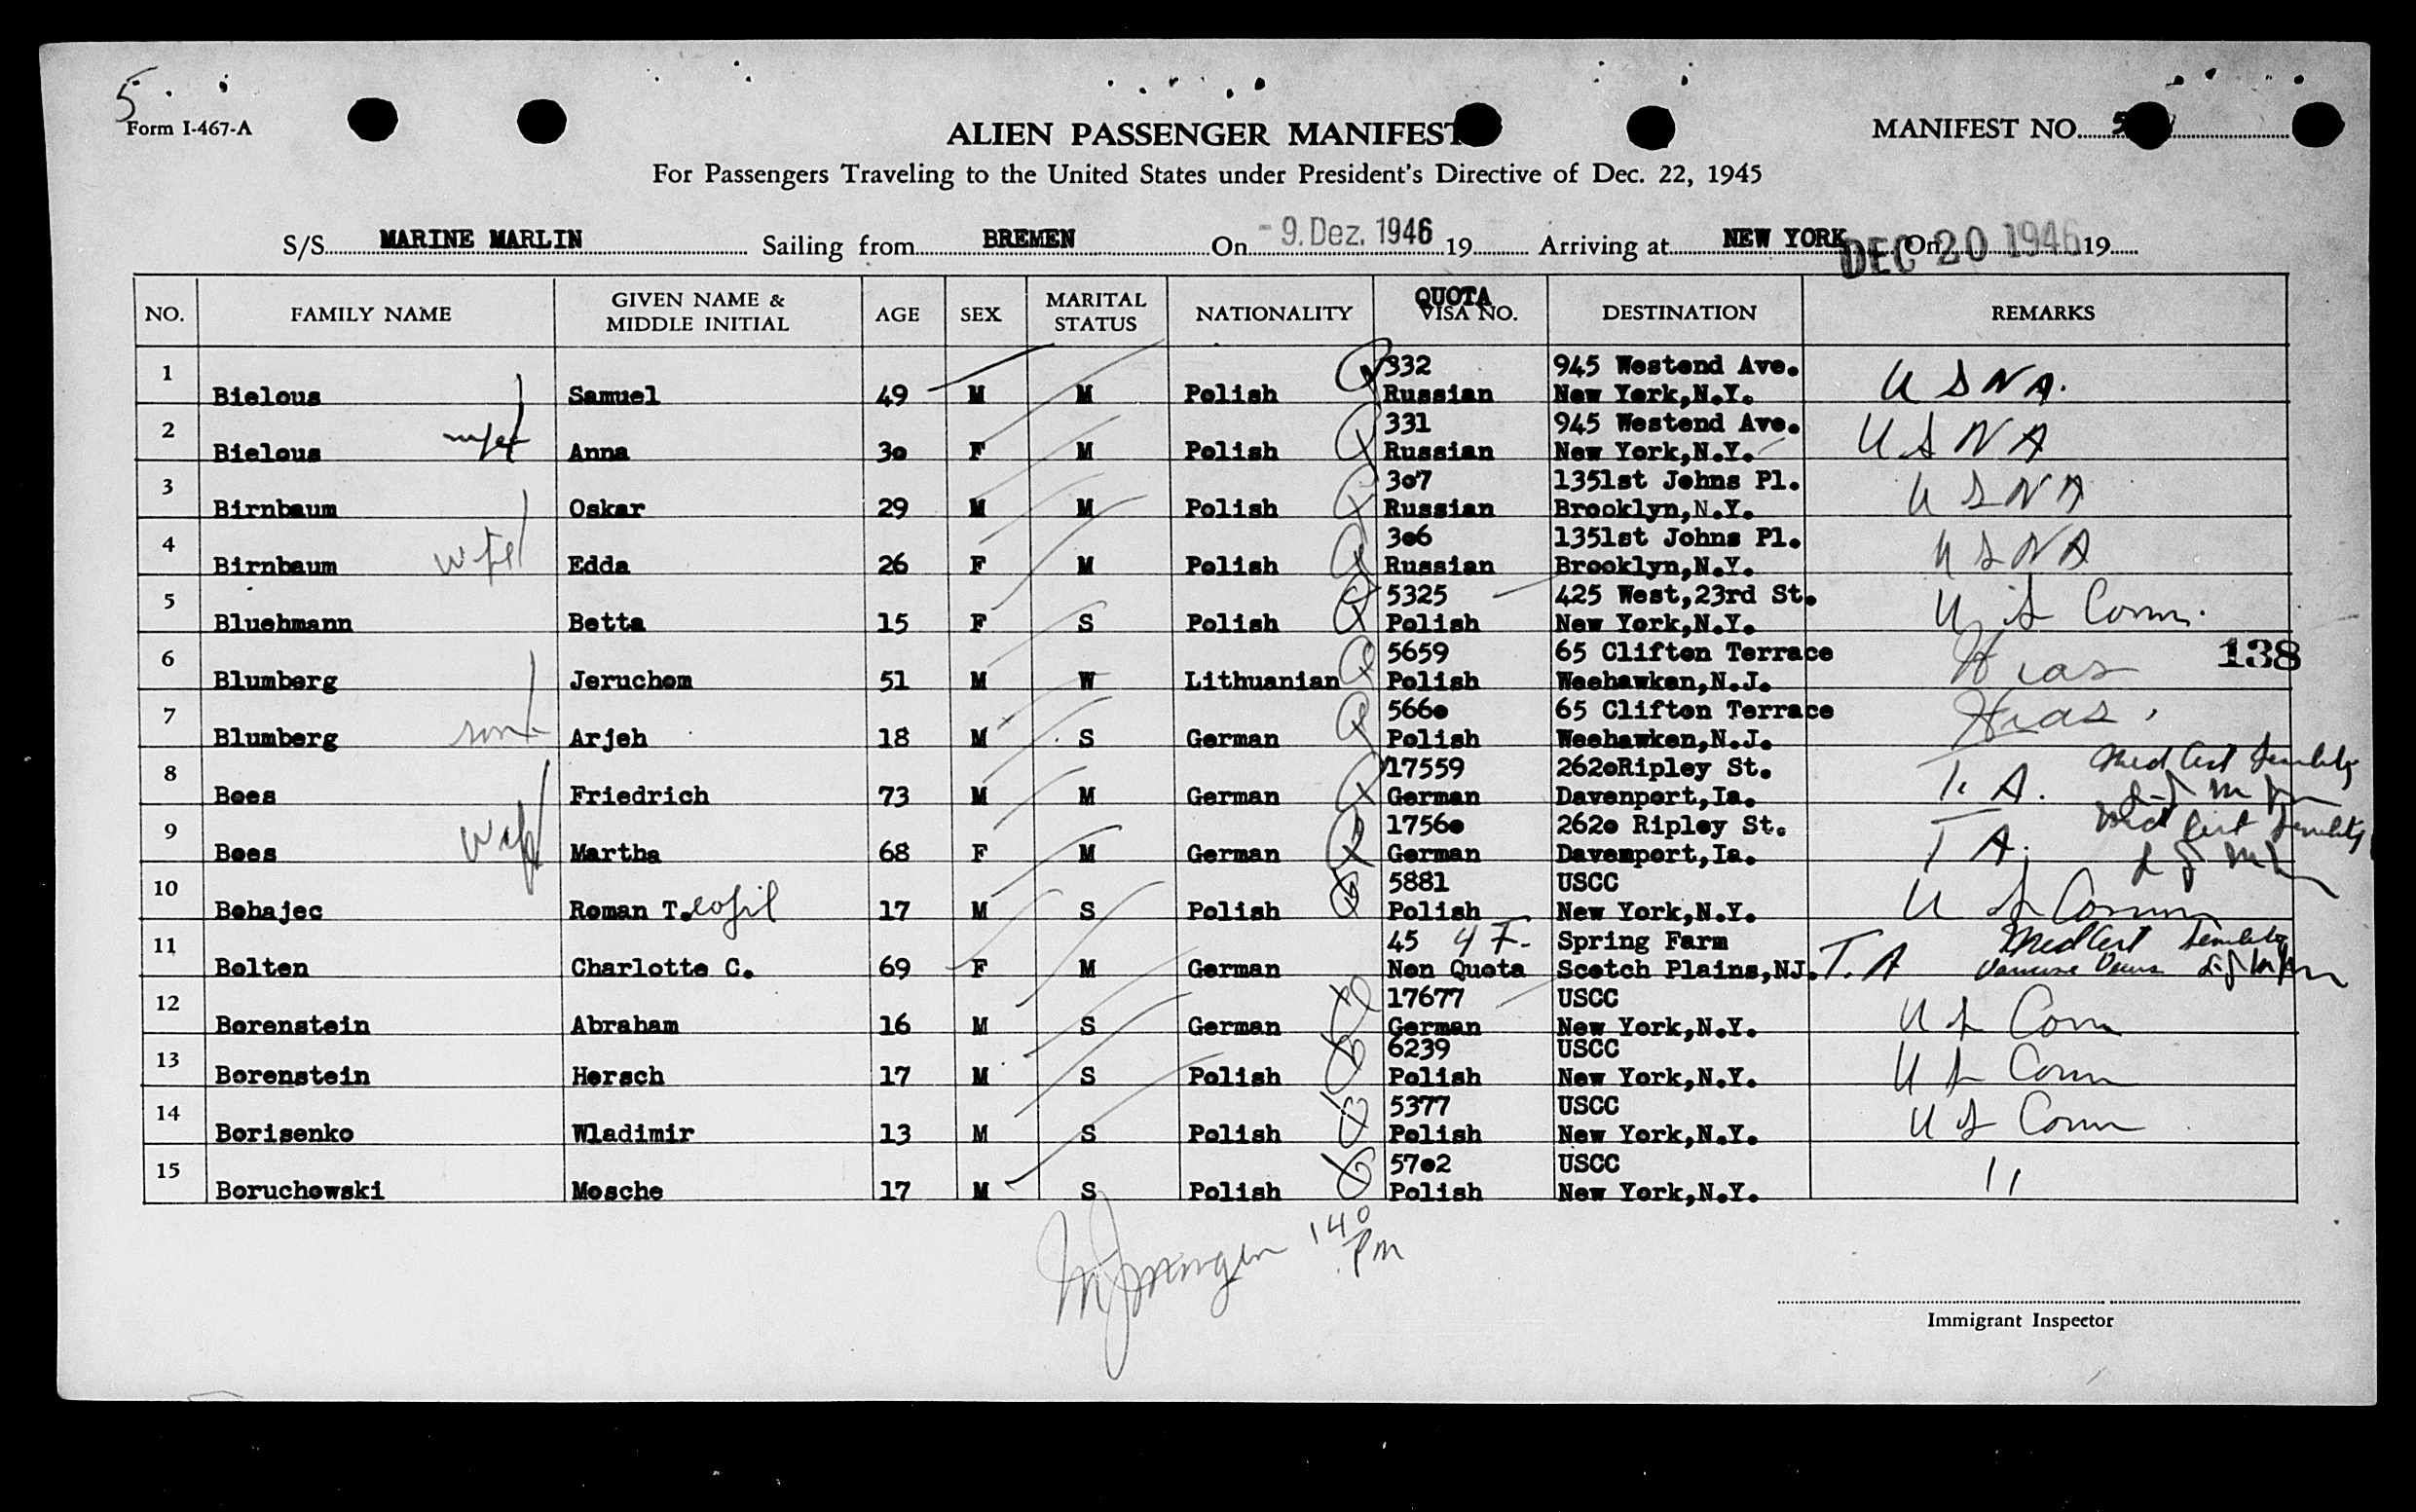 5
Form I-467-A
ALIEN PASSENGER MANIFEST
MANIFEST NO.
For Passengers Traveling to the United States under President's Directive of Dec. 22, 1945
S/S MARINE MARLIN Sailing from BREMEN On - 9. Dez. 1946 19 Arriving at NEW YORK On DEC 20 1946 19
NO. FAMILY NAME GIVEN NAME & MIDDLE INITIAL AGE SEX MARITAL STATUS NATIONALITY QUOTA VISA NO. DESTINATION REMARKS
1 Bielous Samuel 49 M M Polish 332 Russian 945 Westend Ave. New York,N.Y. USNA.
2 Bielous wife Anna 30 F M Polish 331 Russian 945 Westend Ave. New York,N.Y. USNA
3 Birnbaum Oskar 29 M M Polish 307 Russian 1351st Johns Pl. Brooklyn,N.Y. USNA
4 Birnbaum wife Edda 26 F M Polish 306 Russian 1351st Johns Pl. Brooklyn,N.Y. USNA
5 Bluehmann Betta 15 F S Polish 5325 Polish 425 West,23rd St. New York,N.Y. U S Comm.
6 Blumberg Jeruchem 51 M W Lithuanian 5659 Polish 65 Clifton Terrace Weehawken,N.J. Hias 138
7 Blumberg son Arjeh 18 M S German 5660 Polish 65 Clifton Terrace Weehawken,N.J. Hias
8 Boes Friedrich 73 M M German 17559 German 2620Ripley St. Davenport,Ia. T. A. Med Cert Senility
9 Boes wife Martha 68 F M German 17560 German 2620 Ripley St. Davenport,Ia. T A. Med Cert Senility
10 Bohajec Roman T.eofil 17 M S Polish 5881 Polish USCC New York,N.Y. U S Comm
11 Bolten Charlotte C. 69 F M German 45 4 F- Non Quota Spring Farm Scotch Plains,NJ. T. A Med Cert Senility
12 Borenstein Abraham 16 M S German 17677 German USCC New York,N.Y. U S Com
13 Borenstein Hersch 17 M S Polish 6239 Polish USCC New York,N.Y. U S Com
14 Borisenko Wladimir 13 M S Polish 5377 Polish USCC New York,N.Y. U S Com
15 Boruchowski Mosche 17 M S Polish 5702 Polish USCC New York,N.Y. 11
140 PM
Immigrant Inspector